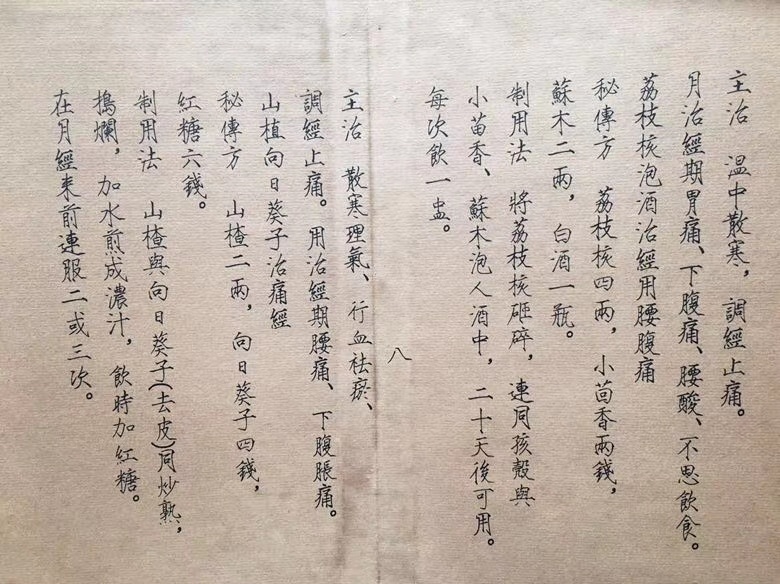 主治　溫中散寒，調經止痛。
月治經期胃痛、下腹痛、腰酸、不思飲食。
荔枝核泡酒治經用腰腹痛
秘傳方　荔枝核四兩，小茴香兩錢，
蘇木二兩，白酒一瓶。
制用法　將荔枝核砸碎，連同孩殼與
小茴香、蘇木泡人酒中，二十天後可用。
每次飲一盅。
八
主治　散寒理氣、行血祛瘀、
調經止痛。用治經期腰痛、下腹脹痛。
山植向日葵子治痛經
秘傳方　山楂二兩，向日葵子四錢，
紅糖六錢。
制用法　山楂與向日葵子(去皮)同炒熟，
搗爛，加水煎成濃汁，飲時加紅糖。
在月經來前連服二或三次。